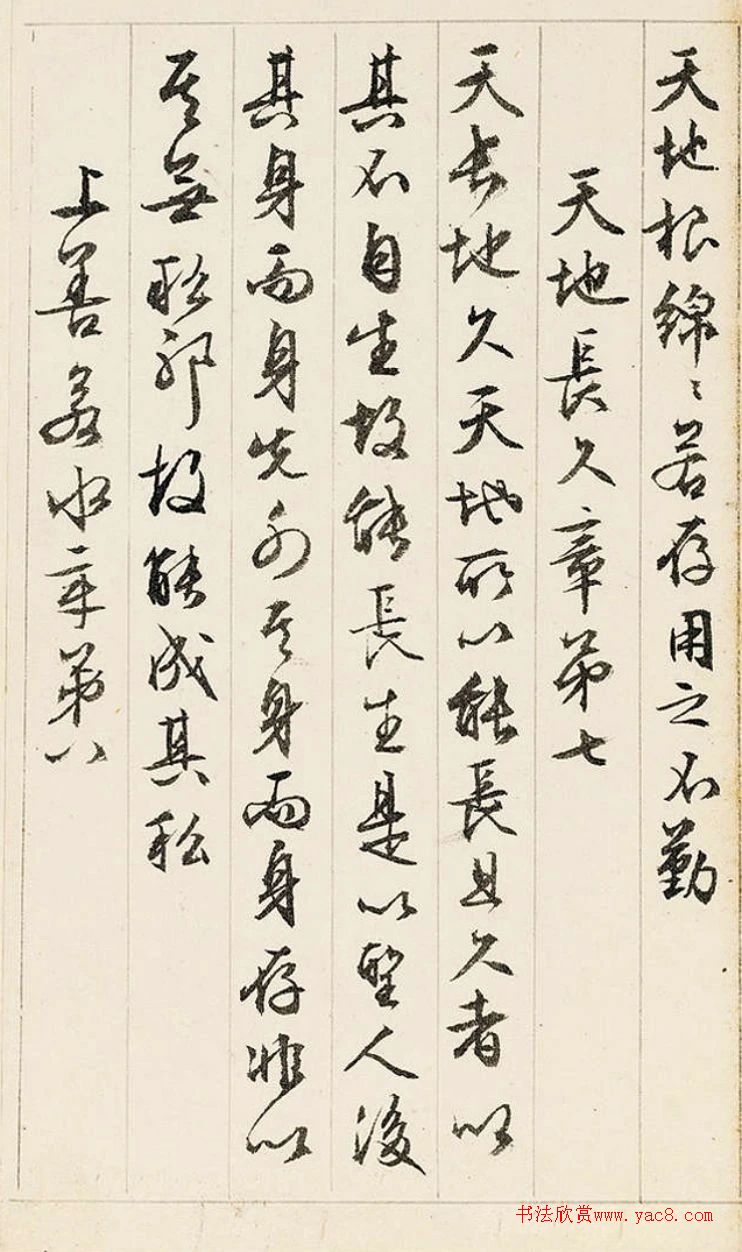 天地根綿〻若存用之不勤
天地長久章第七
天長地久天地所以能長且久者以
其不自生故能長生是以聖人後
其身而身先外其身而身存非以
其無私邪故能成其私
上善若水章第八
书法欣赏www.yac8.com